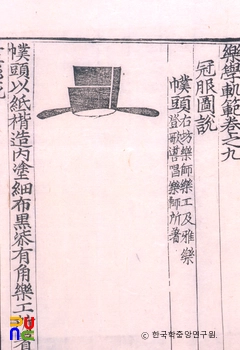 樂學軌範卷之九
冠服圖說
幞頭 右坊樂師樂工及雅樂
登歌謳唱樂師所著
幞頭以紙褙造內塗細布黑漆有角樂工
© 한국학중앙연구원.